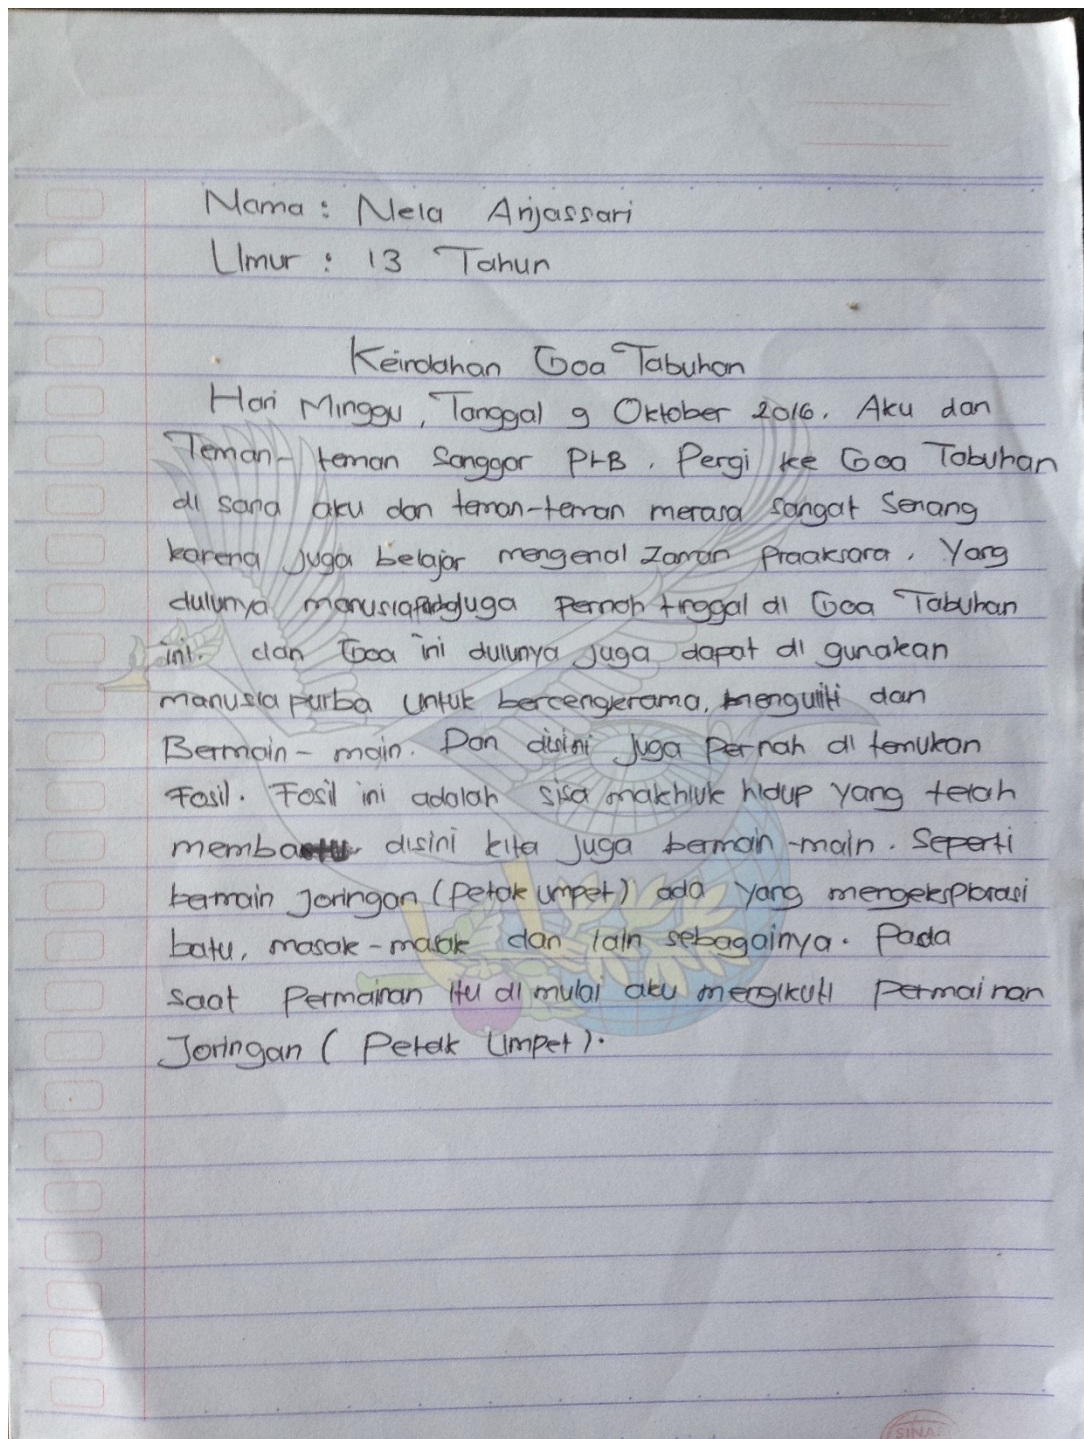 Nama : Nela Anjassari
Umur : 13 Tahun
Keindahan Goa Tabuhan
Hari Minggu, Tanggal 9 Oktober 2016. Aku dan
Teman-teman Sanggar PLB. Pergi ke Goa Tabuhan
di sana aku dan teman-teman merasa sangat Senang
karena juga belajar mengenal Zaman Praaksara. Yang
dulunya manusia juga pernah tinggal di Goa Tabuhan
ini. dan Goa ini dulunya juga dapat di gunakan
manusia purba untuk bercengkerama, menguliti dan
Bermain-main. Dan disini Juga Pernah di temukan
Fosil. Fosil ini adalah sisa makhluk hidup yang telah
membatu disini kita juga bermain-main. Seperti
bermain Joringan (Petak umpet) ada yang mengeksplorasi
batu, masak-masak dan lain sebagainya. Pada
saat Permainan itu di mulai aku mengikuti Permainan
Joringan ( Petak Umpet ).
SINAR